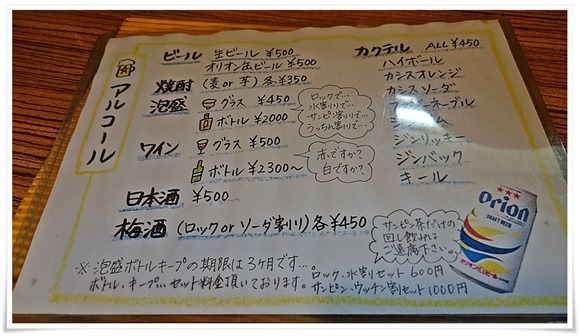 アルコール
ビール 生ビール ¥500
オリオン缶ビール ¥500
焼酎 (麦 or 芋) 各¥350
泡盛 グラス ¥450
ボトル ¥2000
ロックで…
水割りで…
サンピン割りで…
うっちん割で…
ワイン グラス ¥500
ボトル ¥2300〜
赤ですか?
白ですか?
日本酒 ¥500
梅酒 (ロック or ソーダ割り) 各¥450
カクテル ALL ¥450
ハイボール
カシスオレンジ
カシスソーダ
ジンリッキー
ジンバック
キール
サンピン茶だけの
回し飲みは
ご遠慮下さいっ
Orion
DRAFT BEER
オリオン生ビール
※泡盛ボトルキープの期限は3ケ月です…。
ボトル・キープ、、セット料金頂いております。
ロック、水割セット 600円
サンピン・ウッチン割セット 1000円